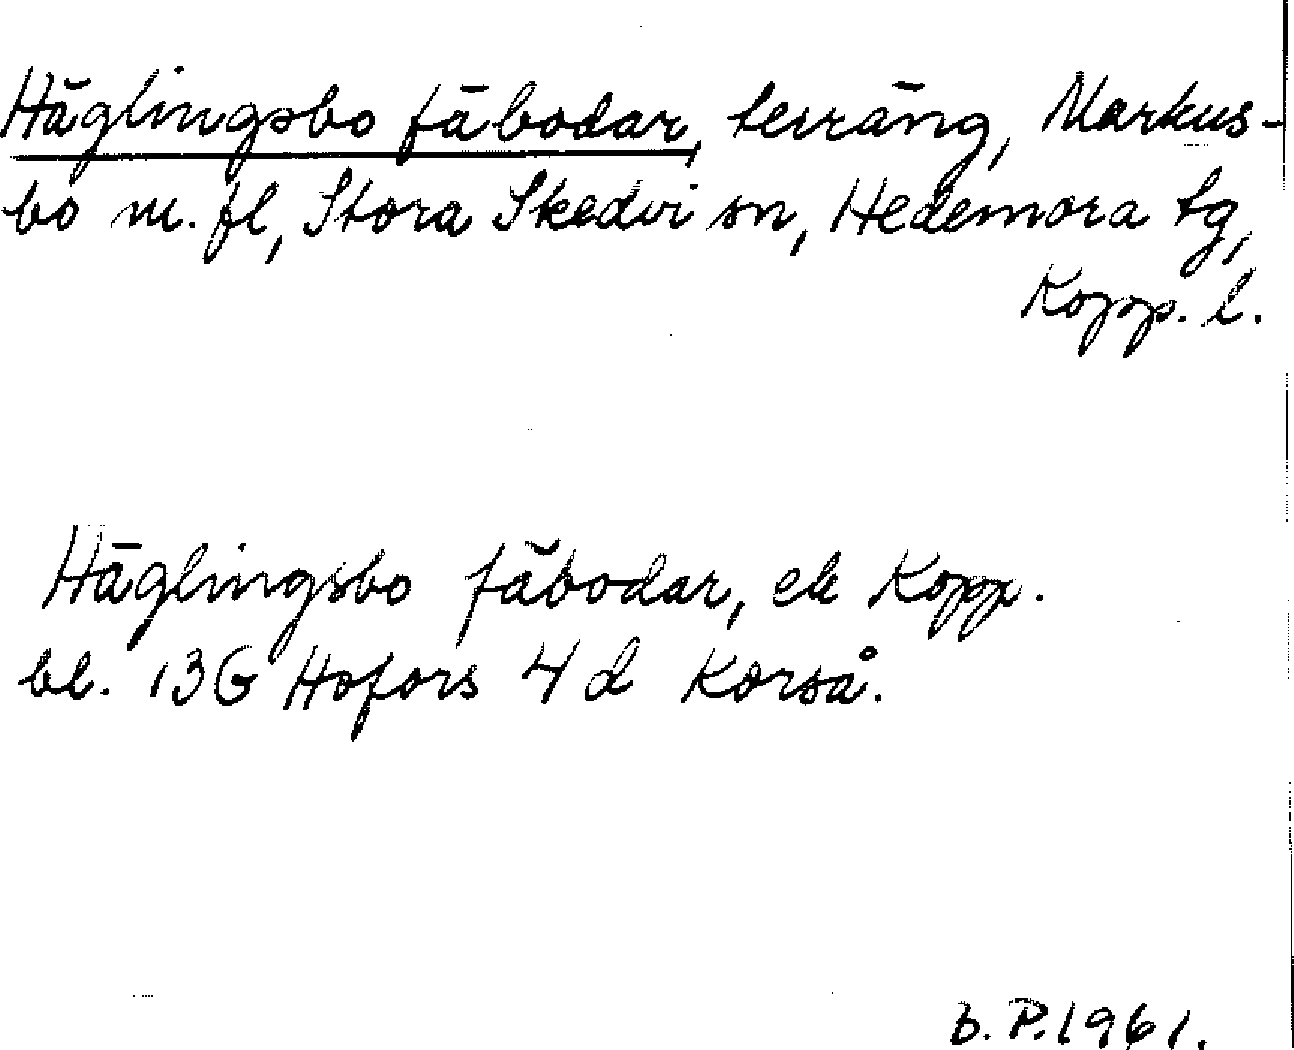 Häglingsbo fäbodar, terräng, Markus-
bo m. fl, Stora Skedvi sn, Hedemora tg,
Kopp. l.
Häglingsbo fäbodar, ek Kopp.
bl. 13G Hofors 4d Korså.
B. P. 1961.